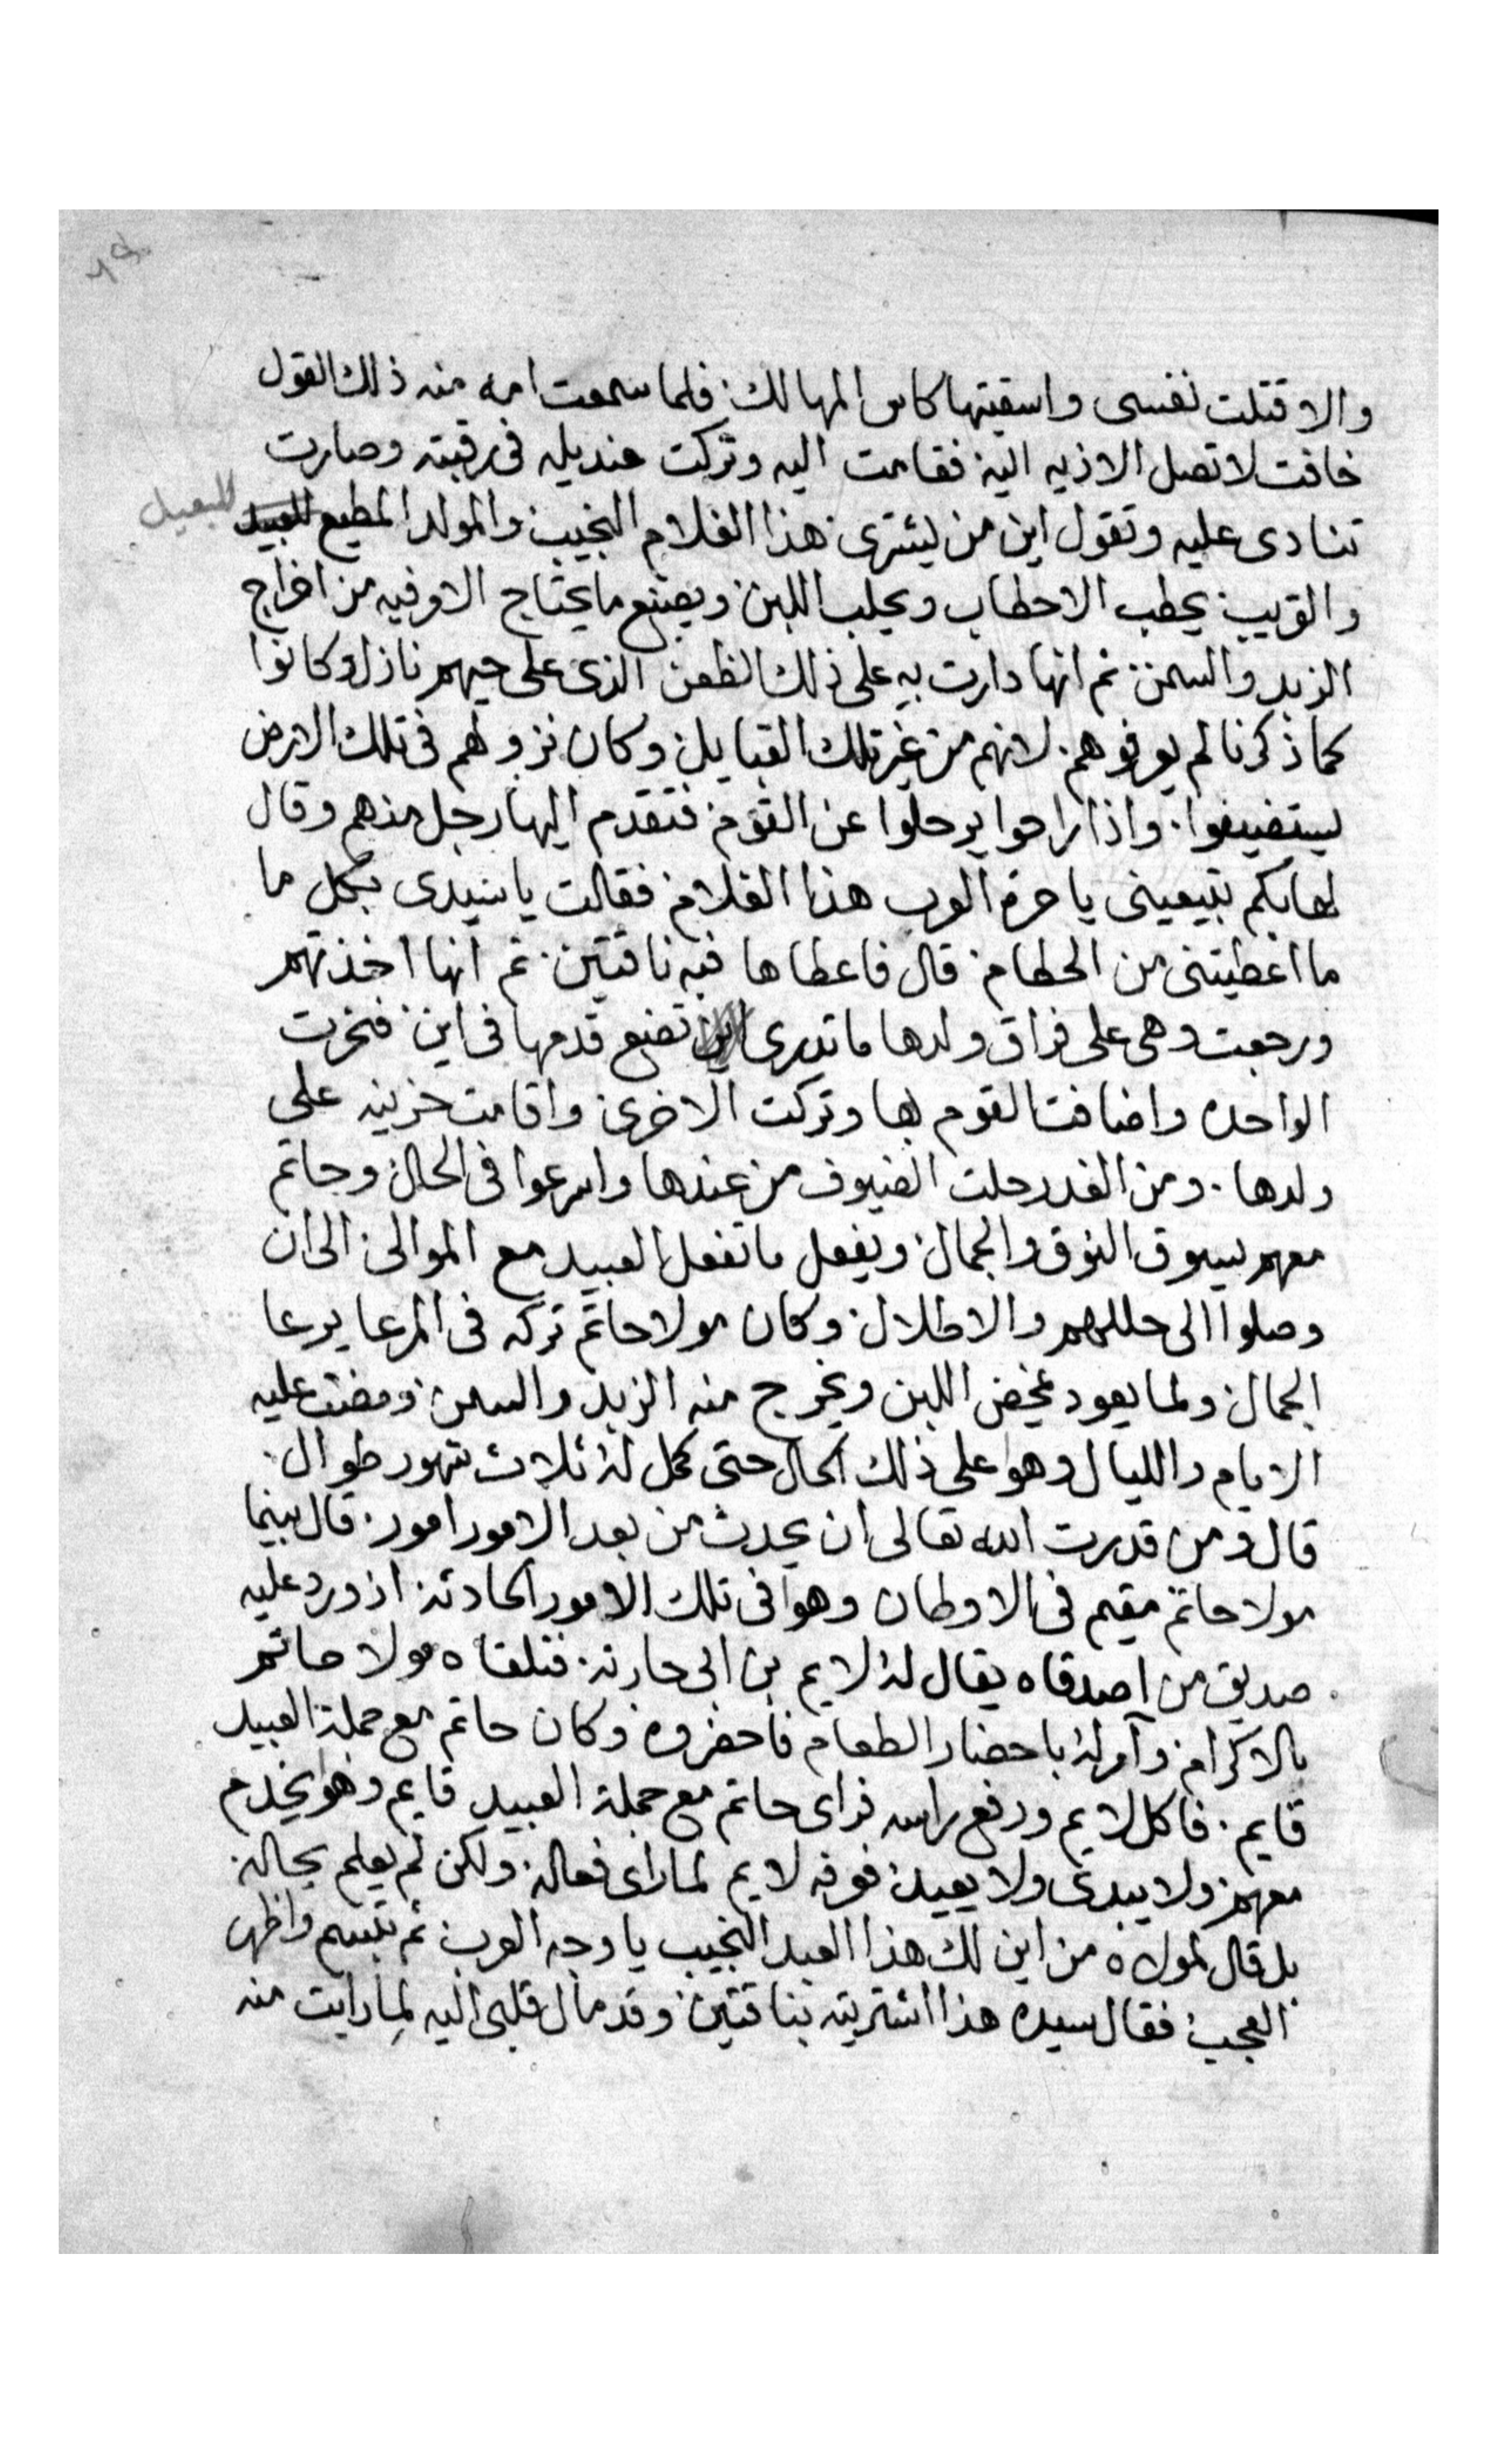 والا قتلت نفسى واسقيتها كاس المهالك فلما سمعت امه منه ذلك القول
خافت لا تصل الاذيه اليه فقامت اليه وتركت منديله فى رقبته وصارت
تنادى عليه وتقول اين من يشترى هذا الغلام النجيب والمولد المطيع للبعيد
والقريب يحطب الاحطاب ويحلب اللبن ويصنع ما يحتاج الامر فيه من اخراج
الزبد والسمن ثم انها دارت به على ذلك الظعن الذى على حيهم نازل وكانوا
كما ذكرنا لم يعرفوهم لانهم من غير تلك القبايل وكان نزولهم فى تلك الارض
يستضيفوا واذا راحوا يرحلوا عن القوم فتقدم اليها رجل منهم وقال
لها بكم تبيعينى يا حرة العرب هذا الغلام فقالت يا سيدى بكل ما
ما اعطيتنى من الحطام قال فاعطاها فيه ناقتين ثم انها اخذتهم
ورجعت وهى على فراق ولدها ما تدرى اين تضع قدمها فى اين فنحرت
الواحده واضافت القوم بها وتركت الاخرى واقامت حزينه على
ولدها ومن الغد رحلت الضيوف من عندها واسرعوا فى الحال وحاتم
معهم يسوق النوق والجمال ويفعل ما تفعل العبيد مع الموالى الى ان
وصلوا الى حللهم والاطلال وكان مولا حاتم تركه فى المرعا يرعا
الجمال ولما يعود يمخض اللبن ويخرج منه الزبد والسمن ومضت عليه
الايام والليال وهو على ذلك الحال حتى كمل له ثلاث شهور طوال
قال ومن قدرت الله تعالى ان يحدث من بعد الامور امور قال بينما
مولا حاتم مقيم فى الاوطان وهو فى تلك الامور الحادثه اذ ورد عليه
صديق من اصدقاه يقال له لايم بن ابى حارثه فتلقاه مولا حاتم
بالاكرام وامر له باحضار الطعام فاحضروه وكان حاتم مع جملة العبيد
قايم فاكل لايم ورفع راسه فراى حاتم مع جملة العبيد قايم وهو يخدم
معهم ولا يبدى ولا يعيد فعرفه لايم لما راى فعاله ولكن لم يعلم بحاله
بل قال لمولاه من اين لك هذا العبد النجيب يا وجه العرب ثم تبسم واظهر
العجب فقال سيده هذا اشتريته بناقتين وقد مال قلبى اليه لما رايت منه